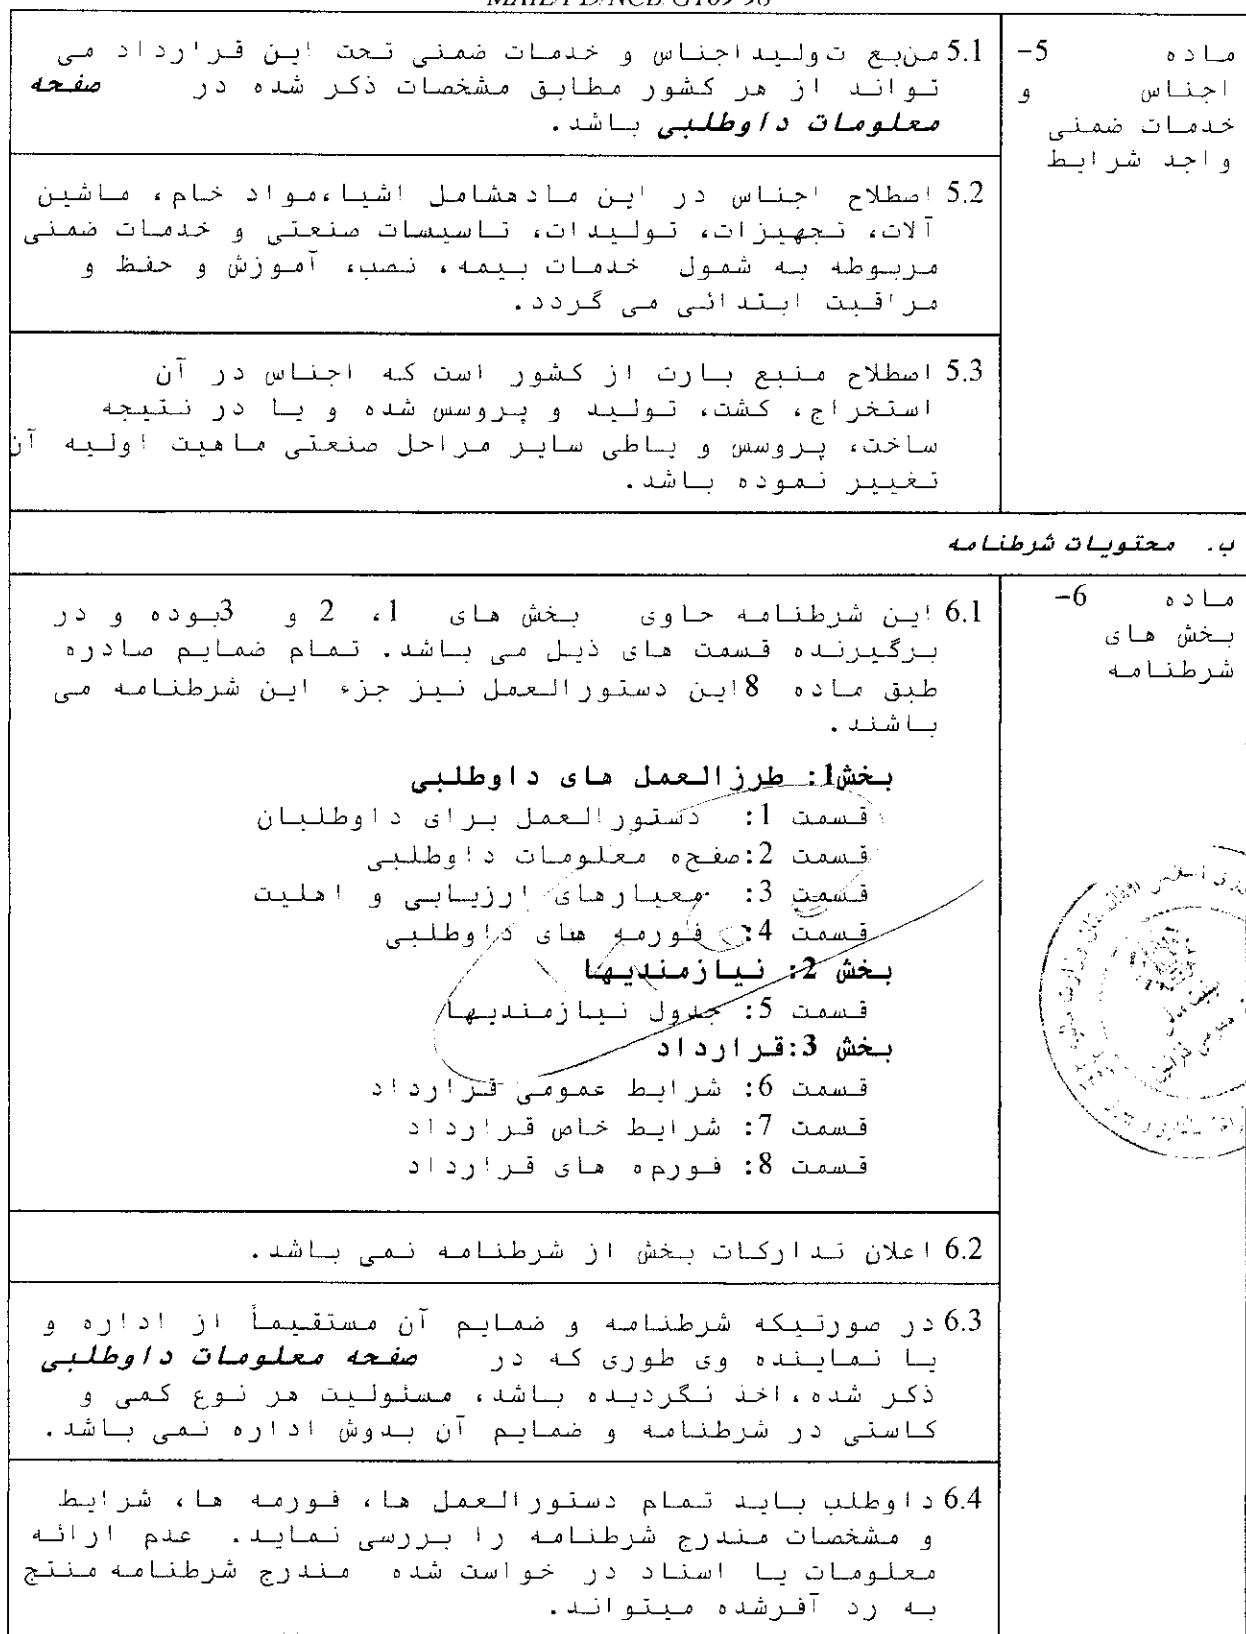 ماده 5-
اجناس و
خدمات ضمنی
واجد شرایط
5.1 منبع تولیداجناس و خدمات ضمنی تحت این قرارداد می
تواند از هر کشور مطابق مشخصات ذکر شده در صفحه
معلومات داوطلبی باشد.
5.2 اصطلاح اجناس در این مادهشامل اشیا،مواد خام، ماشین
آلات، تجهیزات، تولیدات، تاسیسات صنعتی و خدمات ضمنی
مربوطه به شمول خدمات بیمه، نصب، آموزش و حفظ و
مراقبت ابتدائی می گردد.
5.3 اصطلاح منبع بارت از کشور است که اجناس در آن
استخراج، کشت، تولید و پروسس شده و یا در نتیجه
ساخت، پروسس و یاطی سایر مراحل صنعتی ماهیت اولیه آن
تغییر نموده باشد.
ب. محتویات شرطنامه
ماده 6-
بخش های
شرطنامه
6.1 این شرطنامه حاوی بخش های 1، 2 و 3بوده و در
برگیرنده قسمت های ذیل می باشد. تمام ضمایم صادره
طبق ماده 8این دستورالعمل نیز جزء این شرطنامه می
باشند.
بخش1: طرزالعمل های داوطلبی
قسمت 1: دستورالعمل برای داوطلبان
قسمت 2:صفحه معلومات داوطلبی
قسمت 3: معیارهای ارزیابی و اهلیت
قسمت 4: فورمه های داوطلبی
بخش 2: نیازمندیها
قسمت 5: جدول نیازمندیها
بخش 3:قرارداد
قسمت 6: شرایط عمومی قرارداد
قسمت 7: شرایط خاص قرارداد
قسمت 8: فورمه های قرارداد
6.2 اعلان تدارکات بخش از شرطنامه نمی باشد.
6.3 در صورتیکه شرطنامه و ضمایم آن مستقیماً از اداره و
یا نماینده وی طوری که در صفحه معلومات داوطلبی
ذکر شده،اخذ نگردیده باشد، مسئولیت هر نوع کمی و
کاستی در شرطنامه و ضمایم آن بدوش اداره نمی باشد.
6.4 داوطلب باید تمام دستورالعمل ها، فورمه ها، شرایط
و مشخصات مندرج شرطنامه را بررسی نماید. عدم ارائه
معلومات یا اسناد در خواست شده مندرج شرطنامه منتج
به رد آفرشده میتواند.